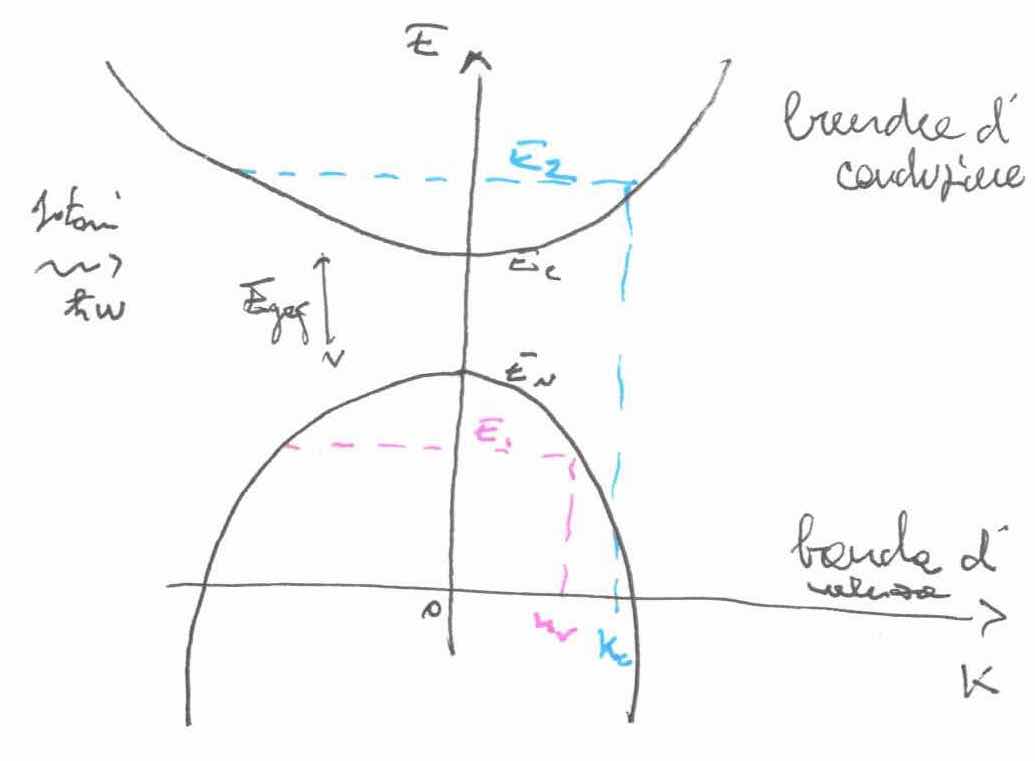 E
banda di
conduzione
E2
fotoni
ħω
Ec
Egap
Ev
E1
banda di
valenza
0
kv
kc
K